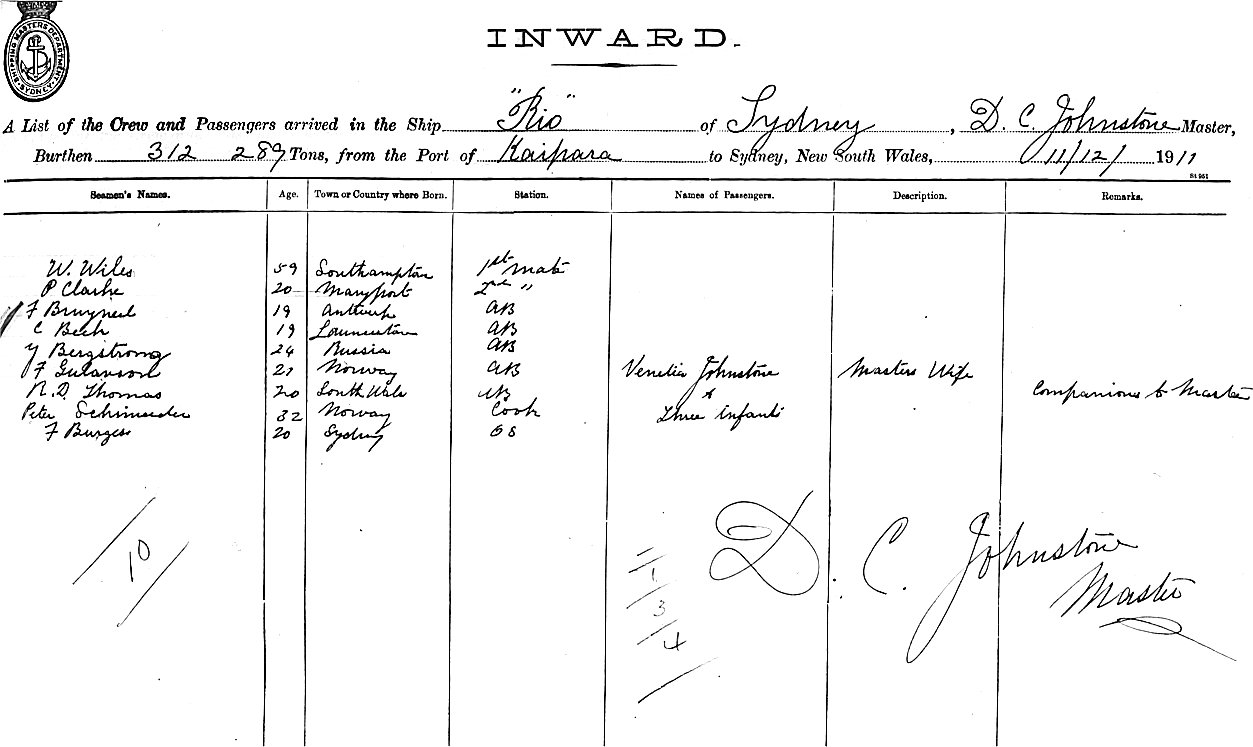 SHIPPING MASTERS DEPARTMENT
SYDNEY
INWARD.
A List of the Crew and Passengers arrived in the Ship "Rio" of Sydney, D. C. Johnstone Master,
Burthen 312 289 Tons, from the Port of Kaipara to Sydney, New South Wales, 11/12/1911
St 951
Seamen's Names. Age. Town or Country where Born. Station. Names of Passengers. Description. Remarks.
W. Wiles 59 Southampton 1st mate
P Clarke 20 Maryport 2nd "
F Bruyneel 19 Antwerp AB
C Bech 19 Launceston AB
Y Bergstrong 24 Russia AB
F Gulavson 21 Norway AB Venetia Johnstone Masters Wife
R. D. Thomas 20 South Wales AB & Companions to Master
Peter 32 Norway Cook Three infants
F Burgess 20 Sydney OS
10
1
3
4
D. C. Johnstone
Master